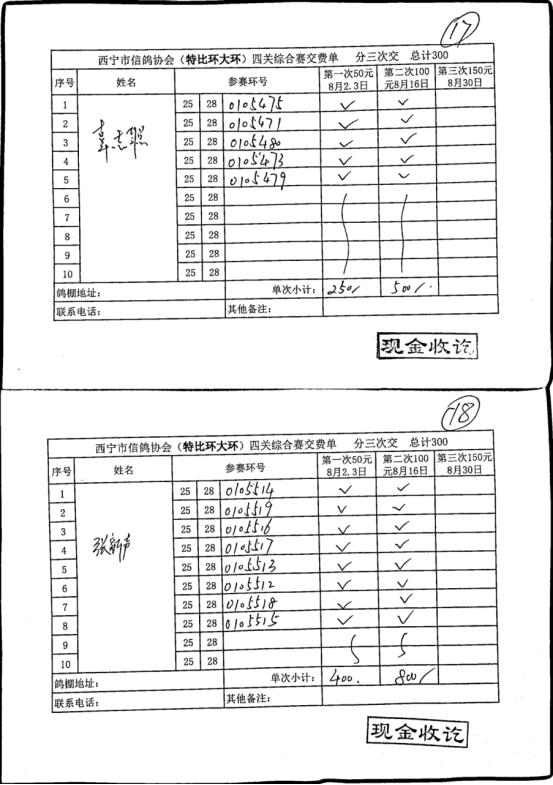 17
西宁市信鸽协会（特比环大环）四关综合赛交费单 分三次交 总计300
序号 姓名 参赛环号 第一次50元8月2.3日 第二次100元8月16日 第三次150元8月30日
1 25 28 0105475 ✓ ✓
2 25 28 0105471 ✓ ✓
3 25 28 0105480 ✓ ✓
4 25 28 0105473 ✓ ✓
5 25 28 0105479 ✓ ✓
6 25 28
7 25 28
8 25 28
9 25 28
10 25 28
鸽棚地址： 单次小计： 250/ 500/.
联系电话： 其他备注：
现金收讫
18
西宁市信鸽协会（特比环大环）四关综合赛交费单 分三次交 总计300
序号 姓名 参赛环号 第一次50元8月2.3日 第二次100元8月16日 第三次150元8月30日
1 25 28 0105514 ✓ ✓
2 25 28 0105519 ✓ ✓
3 25 28 0105516 ✓ ✓
4 张新声 25 28 0105517 ✓ ✓
5 25 28 0105513 ✓ ✓
6 25 28 0105512 ✓ ✓
7 25 28 0105518 ✓ ✓
8 25 28 0105515 ✓ ✓
9 25 28
10 25 28
鸽棚地址： 单次小计： 400. 800/
联系电话： 其他备注：
现金收讫